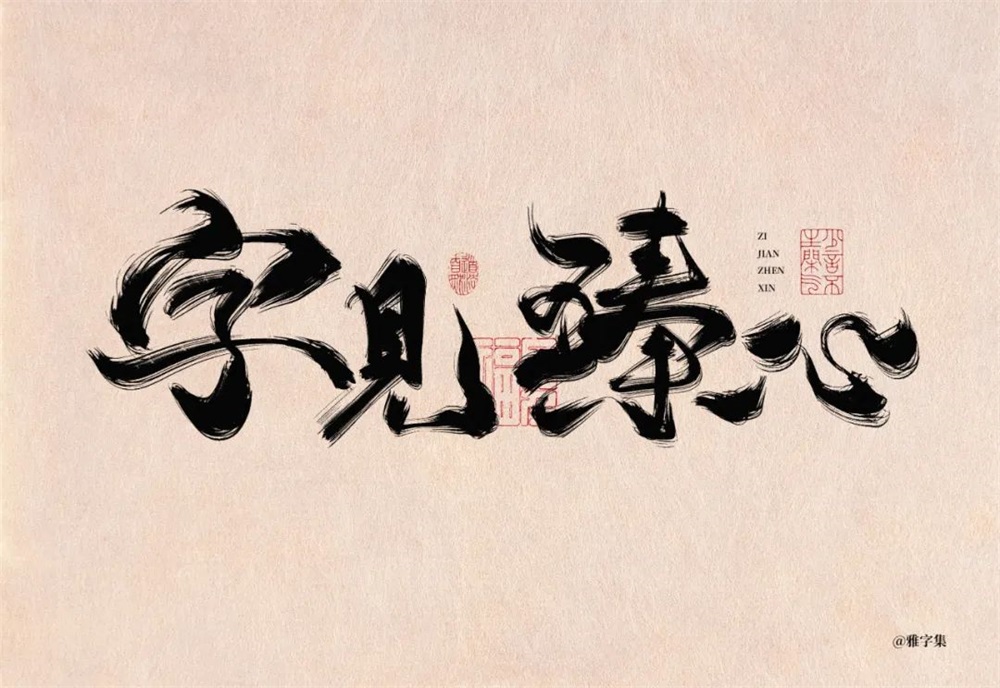 字見臻心
ZI
JIAN
ZHEN
XIN
@雅字集